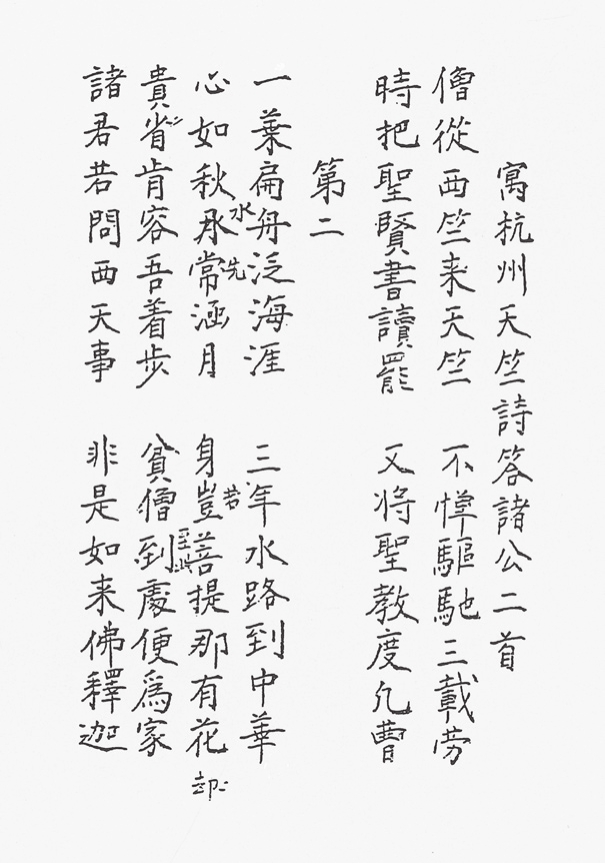 寓杭州天竺詩答諸公二首
僧從西竺来天竺　不憚驅馳三載勞
時把聖賢書讀罷　又将聖教度凡曹
第二
一葉扁舟泛海涯　三年水路到中華
心如秋水常涵月　身豈菩提那有花
先
若
貴省肯容吾着步　貧僧到處便爲家
諸君若問西天事　非是如来佛釋迦